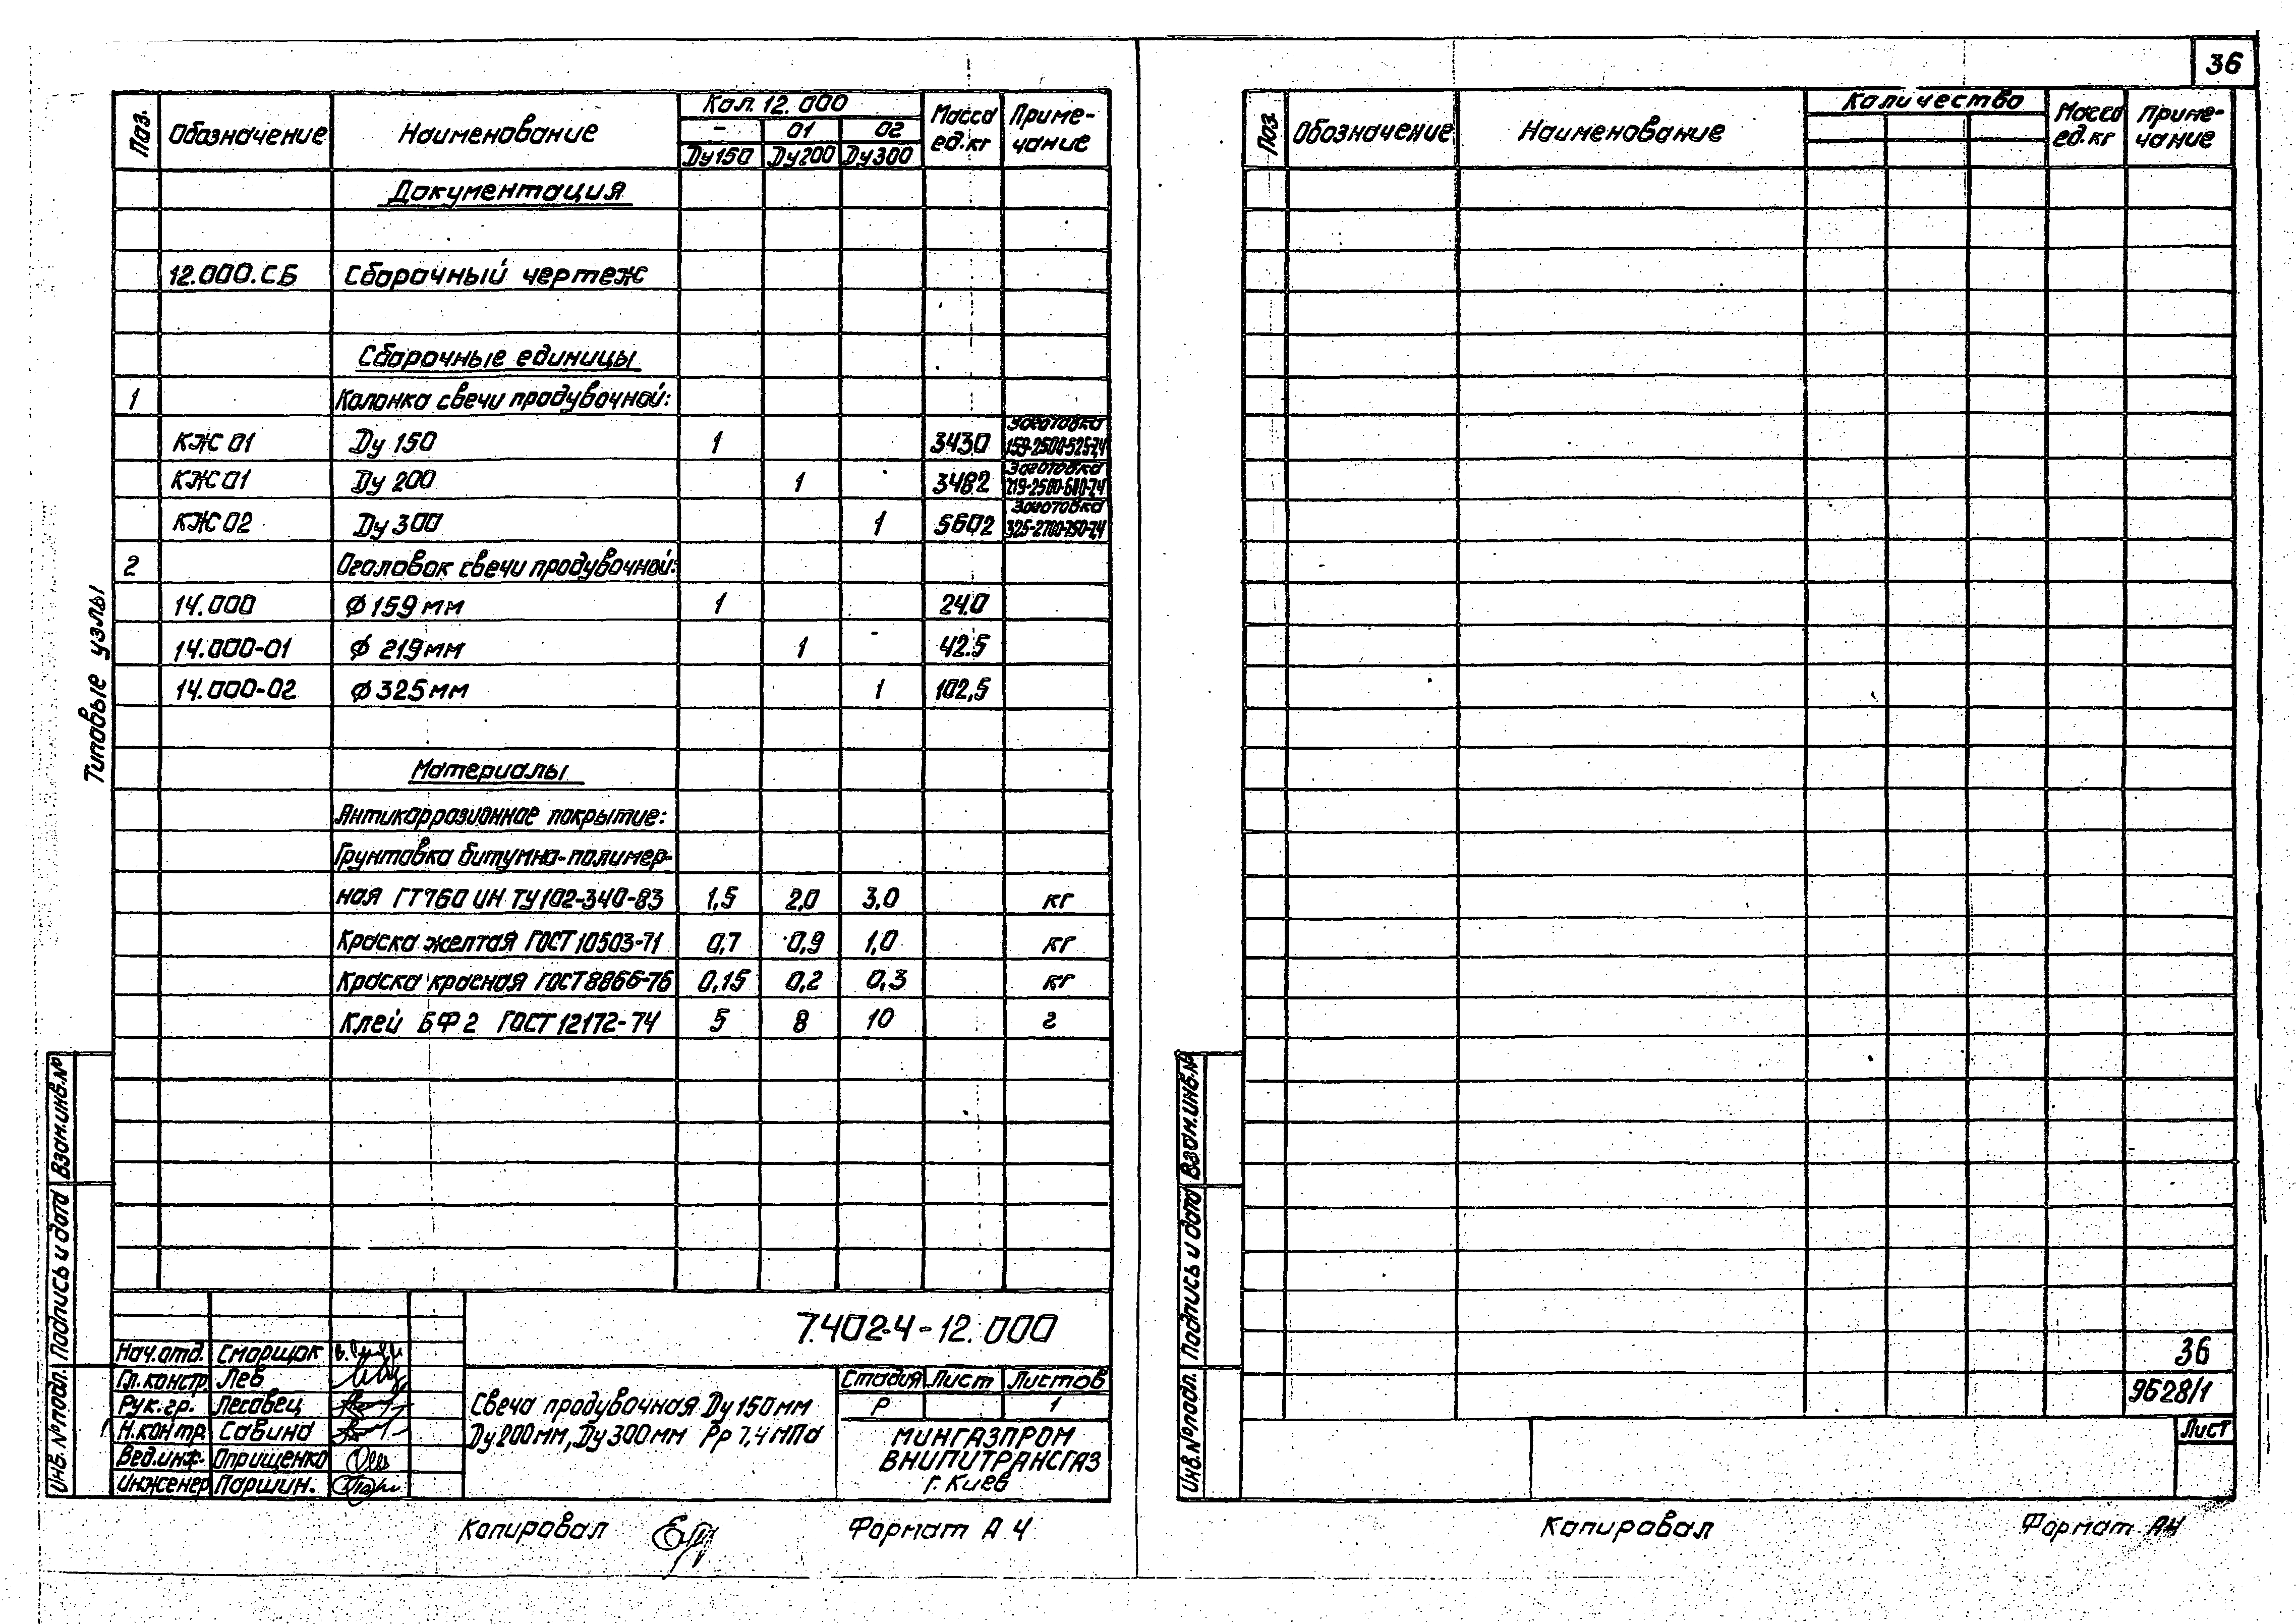 36
Типовые узлы
Поз. Обозначение Наименование Кол. 12.000 Масса ед.кг Приме-чание
- 01 02
Ду150 Ду200 Ду300
Документация
12.000.СБ Сборочный чертеж
Сборочные единицы
1 Колонка свечи продувочной:
КЖ 01 Ду 150 1 343.0 Заготовка 159-2500-525-7,4
КЖ 01 Ду 200 1 348.2 Заготовка 219-2500-600-7,4
КЖ 02 Ду 300 1 560.2 Заготовка 325-2700-750-7,4
2 Оголовок свечи продувочной:
14.000 Ф 159 мм 1 24.0
14.000-01 Ф 219 мм 1 42.5
14.000-02 Ф 325 мм 1 102,5
Материалы
Антикоррозионное покрытие:
Грунтовка битумно-полимер-
ная ГТ 760 ИН ТУ 102-340-83 1,5 2,0 3,0 кг
Краска желтая ГОСТ 10503-71 0,7 0,9 1,0 кг
Краска красная ГОСТ 8866-76 0,15 0,2 0,3 кг
Клей БФ 2 ГОСТ 12172-74 5 8 10 г
Взам.инв.№
Подпись и дата
Инв.№ подл.
7.402-4-12.000
Нач.отд. Сморщок
Гл.констр. Лев
Рук.гр. Лесовец
Н.контр. Савина
Вед.инж. Оприщенко
Инженер Паршин.
Свеча продувочная Ду 150 мм
Ду 200 мм, Ду 300 мм Рр 7,4 МПа
Стадия Лист Листов
Р 1
МИНГАЗПРОМ
ВНИПИТРАНСГАЗ
г. Киев
Копировал Формат А4
Поз. Обозначение Наименование Количество Масса ед.кг Приме-чание
Взам.инв.№
Подпись и дата
Инв.№ подл.
36
9628/1
Лист
Копировал Формат А4